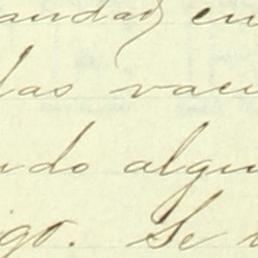 andad en
las vacu
ndo algu
igo. Se